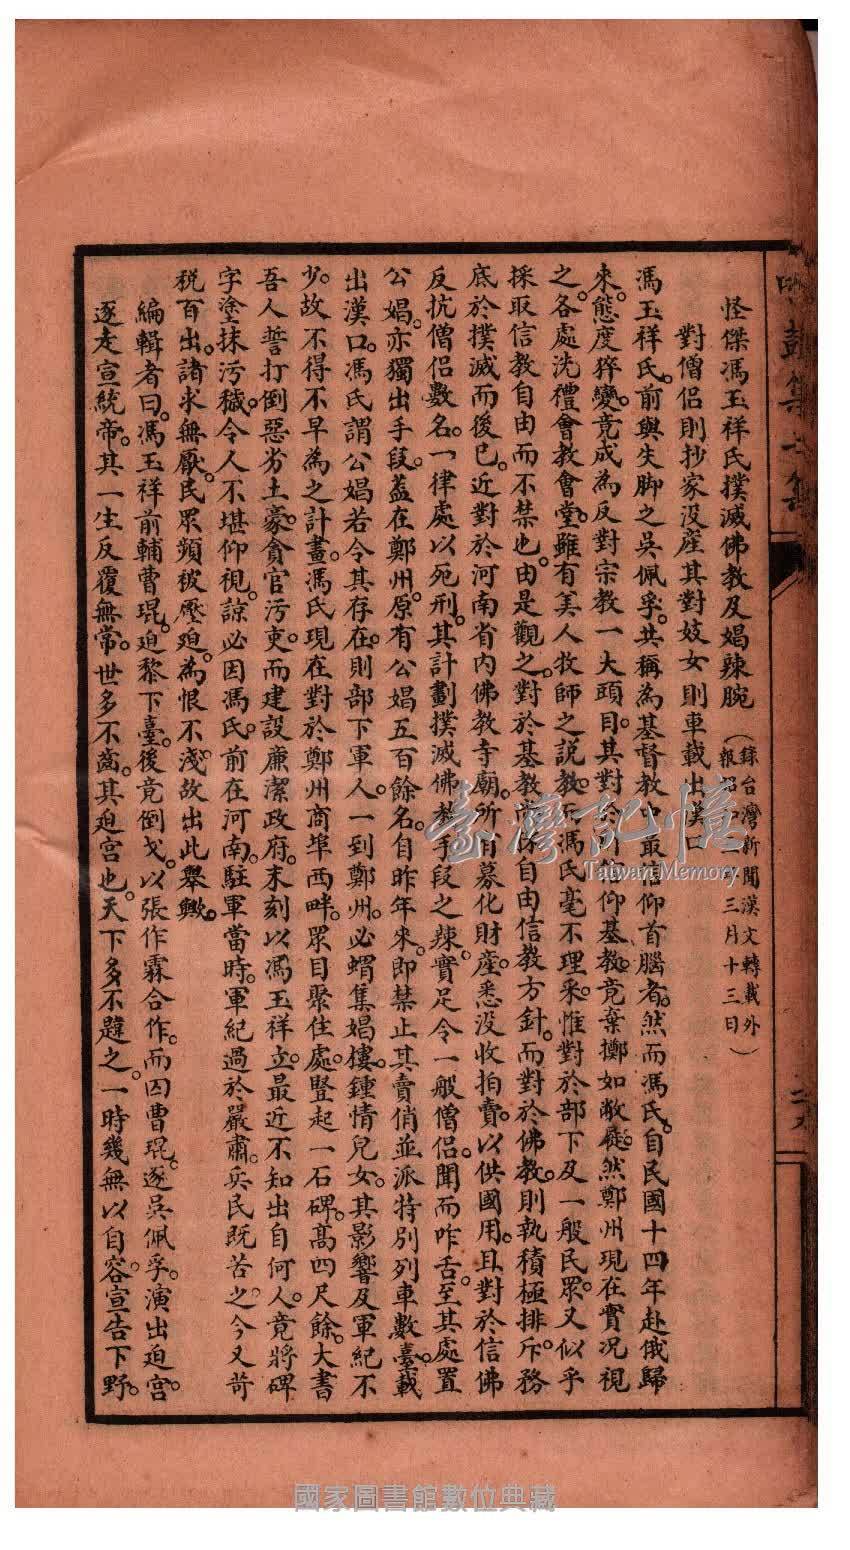 怪傑馮玉祥氏撲滅佛教及娼辣腕（錄台灣新聞漢文轉載外
報昭和三年三月十三日）
對僧侶則抄家沒産其對妓女則車載出漢口
馮玉祥氏。前與失脚之吳佩孚。共稱為基督教中最信仰首腦者。然而馮氏。自民國十四年赴俄歸
來。態度猝變。竟成為反對宗教一大頭目。其對於所信仰基教。竟棄擲如敝屣。然鄭州現在實況視
之。各處洗禮會教會堂。雖有美人牧師之説教。而馮氏毫不理采。惟對於部下及一般民眾。又似乎
採取信教自由而不禁也。由是觀之。對於基教尚保自由信教方針。而對於佛教。則執積極排斥。務
底於撲滅而後已。近對於河南省內佛教寺廟。所有募化財産。悉没收拍賣。以供國用。且對於信佛
反抗僧侶數名。一律處以死刑。其計劃撲滅佛教手段之辣。實足令一般僧侶。聞而咋舌。至其處置
公娼。亦獨出手段。蓋在鄭州。原有公娼五百餘名。自昨年來。即禁止其賣俏並派特別列車數臺。載
出漢口。馮氏謂公娼若令其存在。則部下軍人。一到鄭州。必蝟集娼樓。鍾情兒女。其影響及軍紀不
少。故不得不早為之計畫。馮氏現在對於鄭州商埠西畔。眾目聚住處。豎起一石碑。高四尺餘。大書
吾人誓打倒惡劣土豪。貪官污吏。而建設廉潔政府。末刻以馮玉祥立。最近不知出自何人。竟將碑
字塗抹污穢。令人不堪仰視。諒必因馮氏。前在河南。駐軍當時。軍紀過於嚴肅。兵民既苦之今又苛
税百出。諸求無厭。民眾頻被壓迫。為恨不淺。故出此舉歟。
編輯者曰。馮玉祥前輔曹琨。迫黎下臺。後竟倒戈。以張作霖合作。而囚曹琨。逐吳佩孚。演出迫宮。
逐走宣統帝。其一生反覆無常。世多不齒。其迫宮也。天下多不韙之。一時幾無以自容。宣告下野。
臺灣記憶
Taiwan Memory
國家圖書館數位典藏